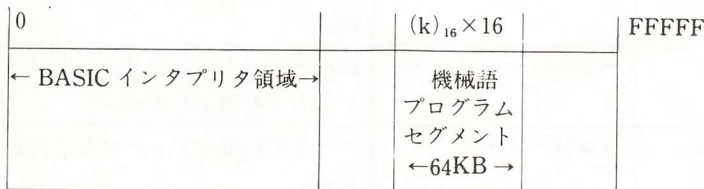 0
(k)₁₆×16
FFFFF
←BASIC インタプリタ領域→
機械語
プログラム
セグメント
←64KB→